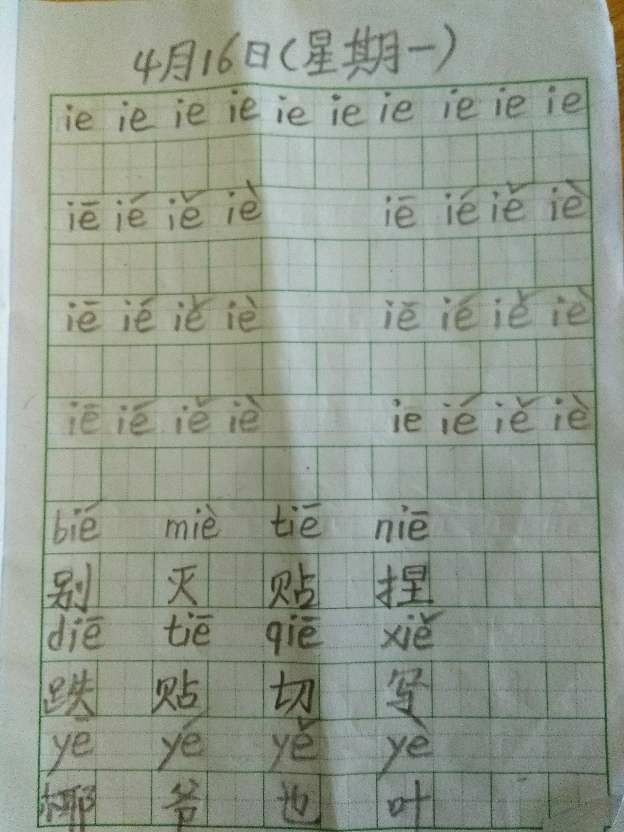 4月16日(星期一)
ie ie ie ie ie ie ie ie ie ie
iē ié iě iè iē ié iě iè
iē ié iě iè iē ié iě iè
iē ié iě iè ie ié iě iè
bié miè tiē niē
别 灭 贴 捏
diē tiē qiē xiě
跌 贴 切 写
yē yé yě yè
椰 爷 也 叶